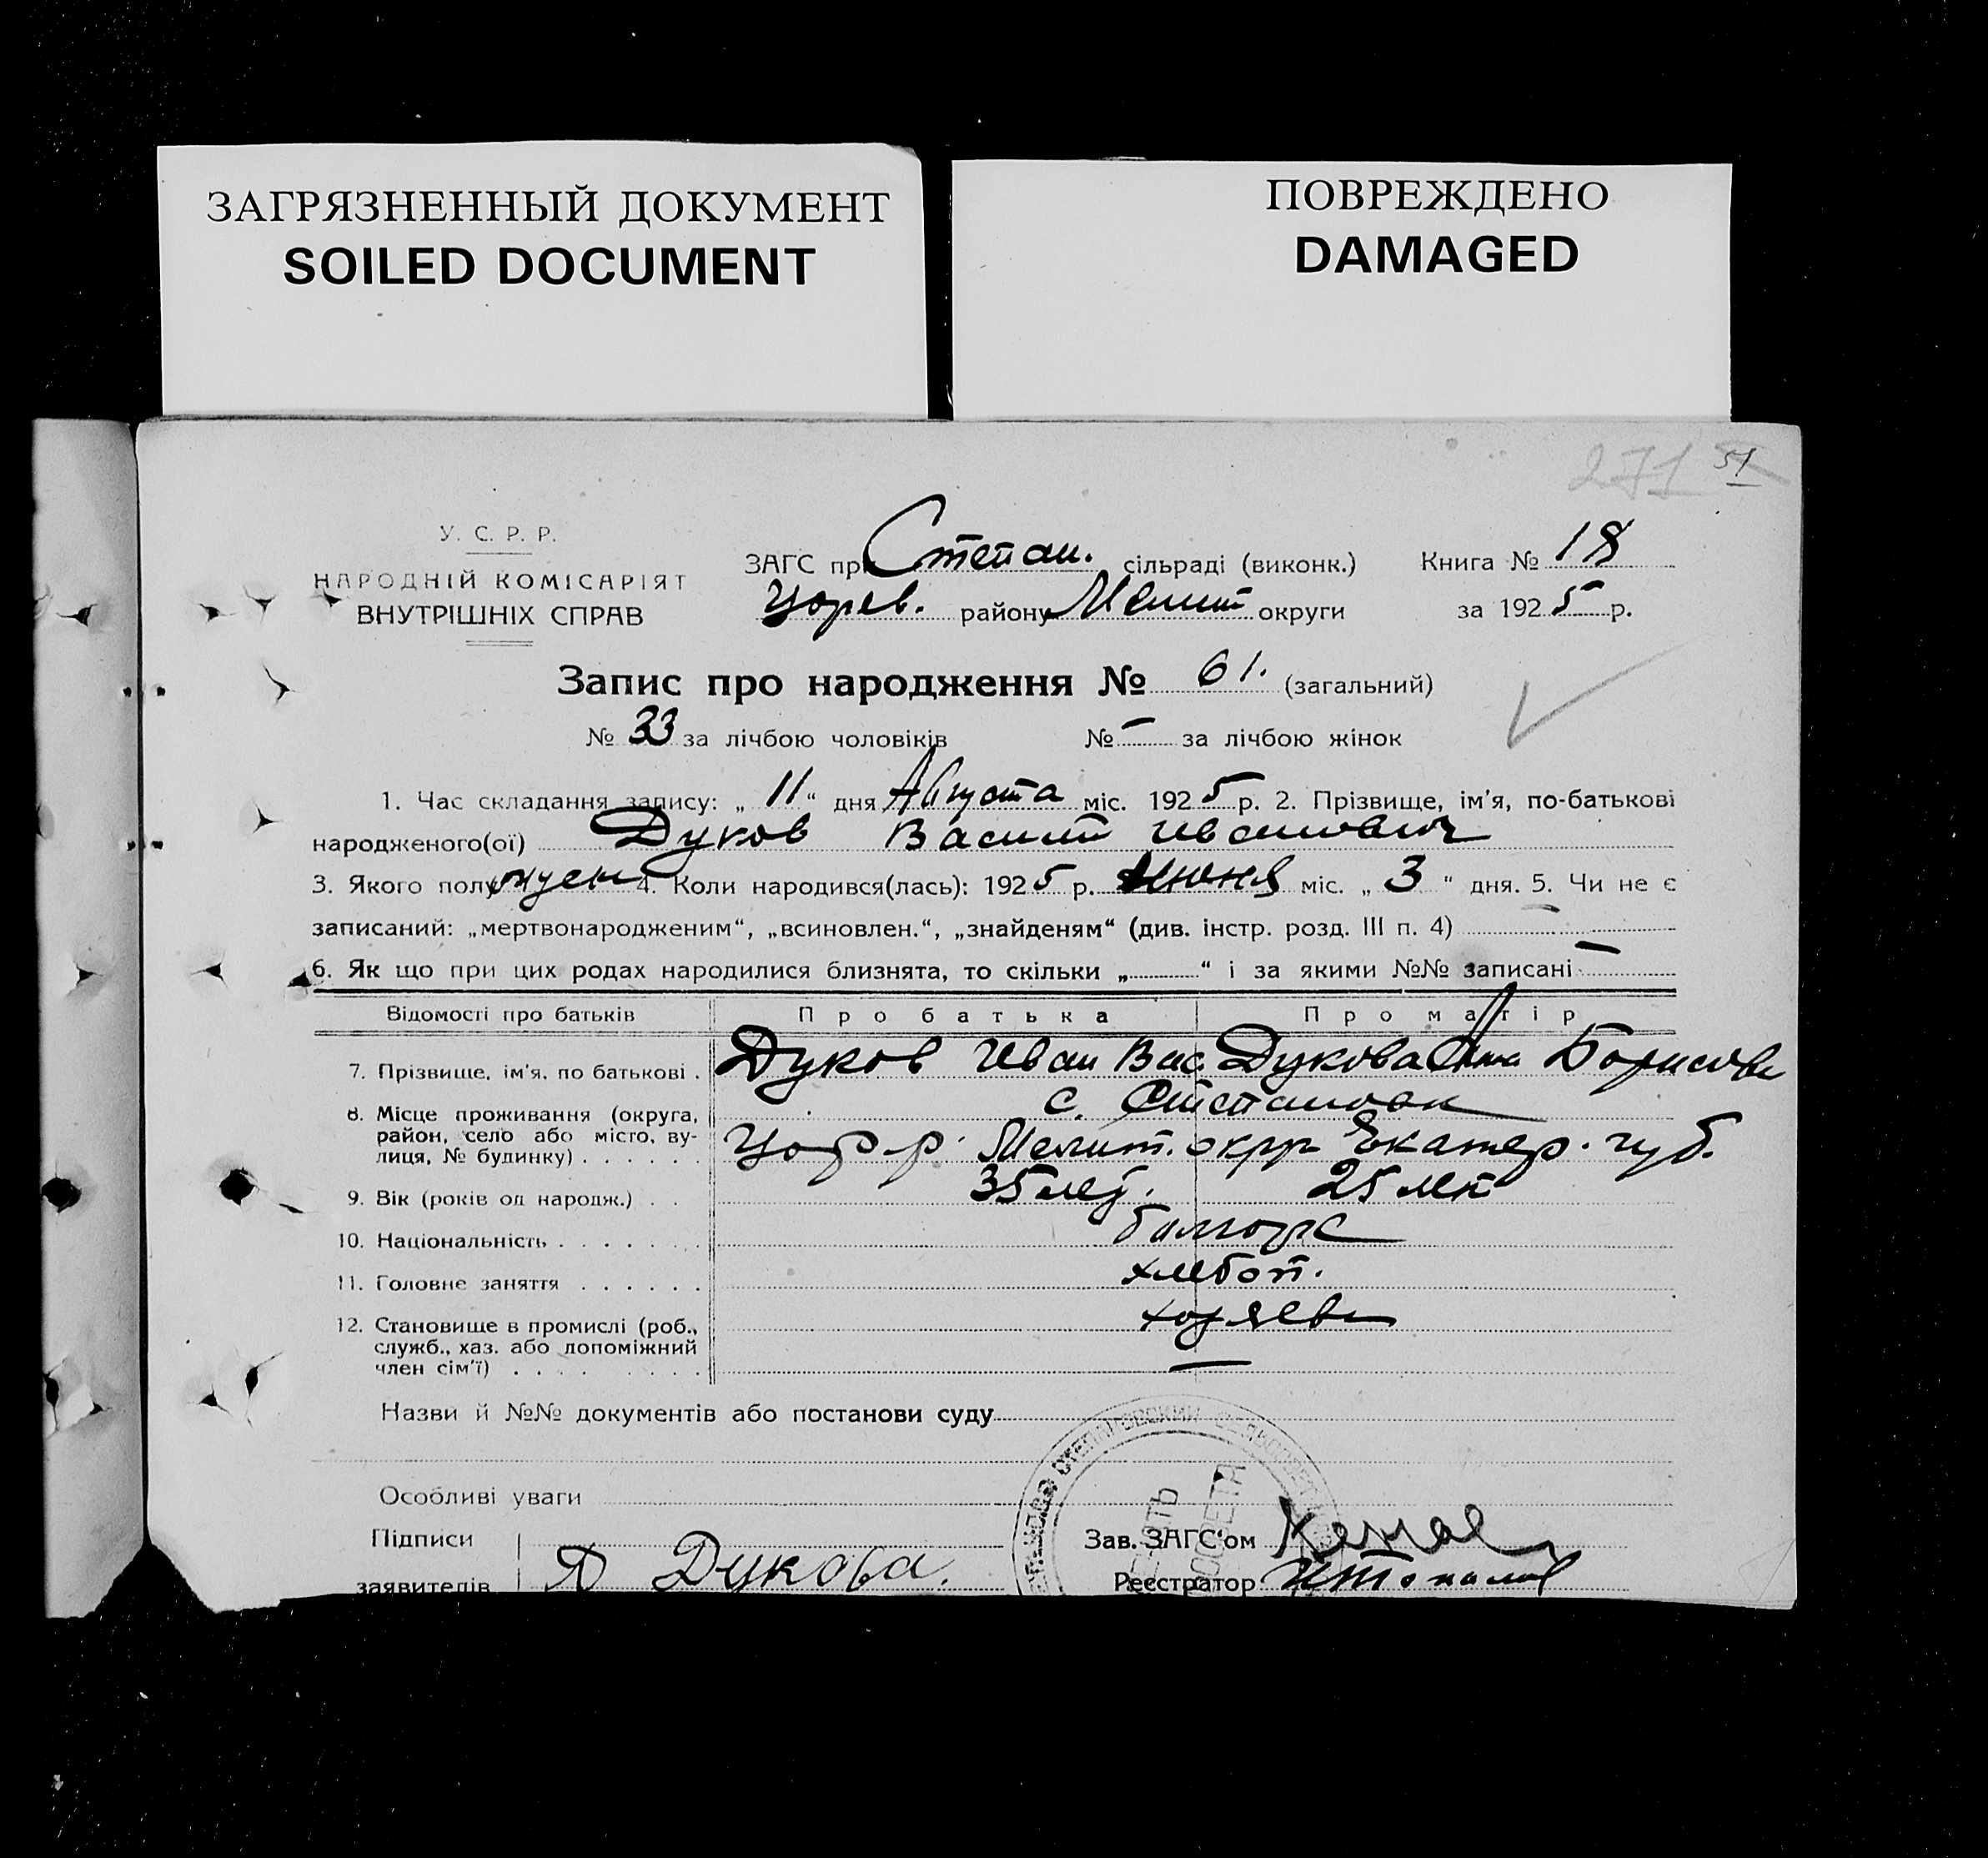 ЗАГРЯЗНЕННЫЙ ДОКУМЕНТ
SOILED DOCUMENT
ПОВРЕЖДЕНО
DAMAGED
271 51
У. С. Р. Р.
НАРОДНІЙ КОМІСАРІЯТ
ВНУТРІШНІХ СПРАВ
ЗАГС при Степан. сільраді (виконк.) Книга № 18
Цорев. району Мелит округи за 1925 р.
Запис про народження № 61. (загальний)
№ 33 за лічбою чоловіків № — за лічбою жінок
1. Час складання запису: „ 11 “ дня Августа міс. 1925 р. 2. Прізвище, ім'я, по-батькові
народженого(ої) Дуков Василий Иванович
3. Якого полу мужск 4. Коли народився(лась): 1925 р. Июня міс. „ 3 “ дня. 5. Чи не є
записаний: „мертвонародженим“, „всиновлен.“, „знайденям“ (див. інстр. розд. III п. 4) —
6. Як що при цих родах народилися близнята, то скільки „ “ і за якими №№ записані —
Відомості про батьків Про батька Про матір
7. Прізвище, ім'я, по батькові . Дуков Иван Вас Дукова Анна Борисовн
8. Місце проживання (округа, район, село або місто, вулиця, № будинку) . . . . . . с. Степановк
Цор р. Мелит. окр Екатер. губ.
9. Вік (років од народж.) . . 35 лет. 25 лет
10. Національність . . . . . . . болгарс
11. Головне заняття . . . . . . хлебоп.
12. Становище в промислі (роб., служб., хаз. або допоміжний член сім'ї) . . . . . . . . хозяева
—
Назви й №№ документів або постанови суду
Особливі уваги
Підписи
заявителів Д Дукова.
Зав. ЗАГС'ом
Реєстратор
СТЕПАНОВСКИЙ СЕЛЬСОВЕТ